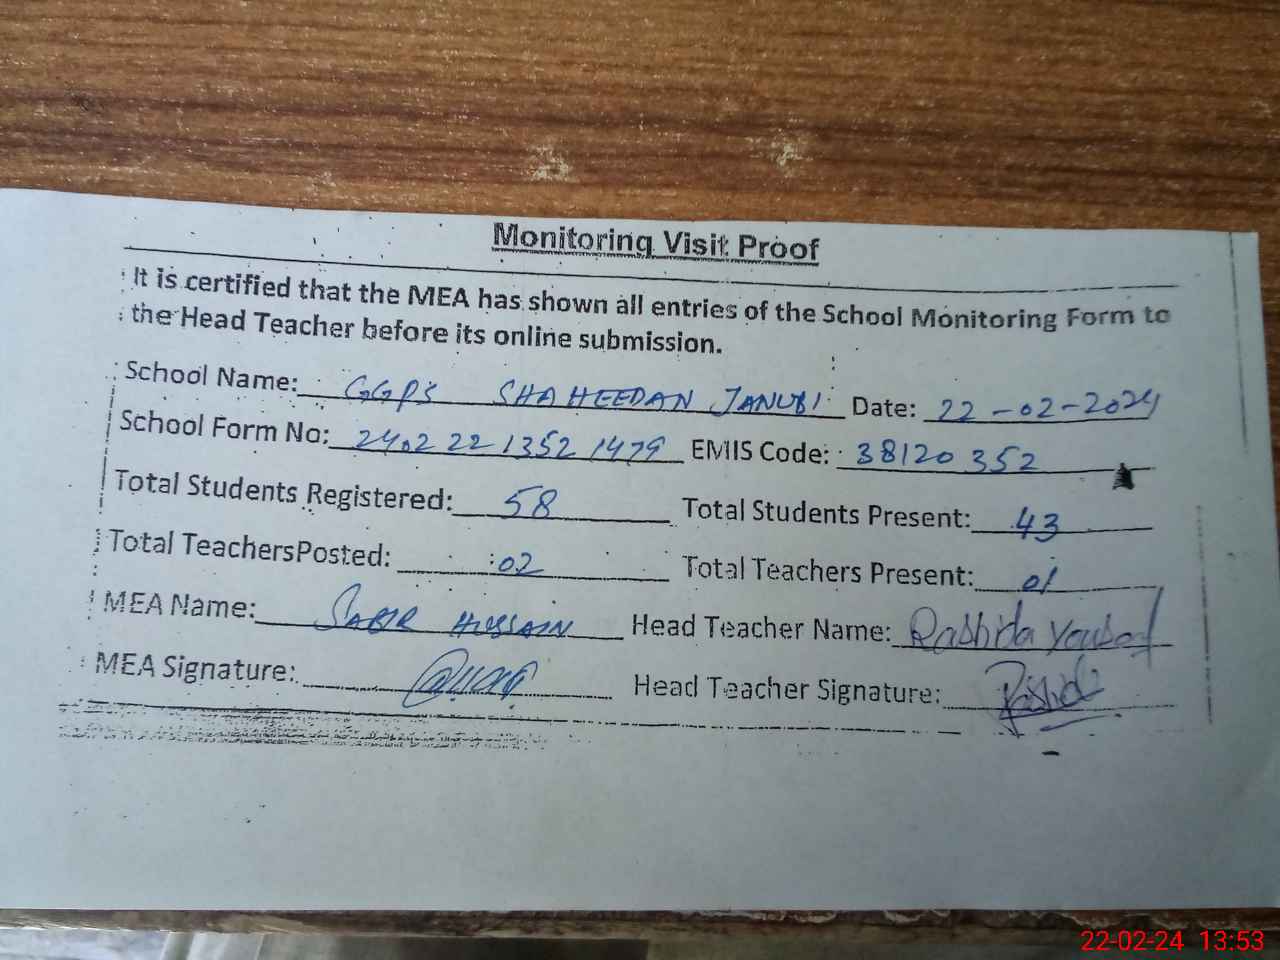 Monitoring Visit Proof
It is certified that the MEA has shown all entries of the School Monitoring Form to
the Head Teacher before its online submission.
School Name: GGPS SHAHEEDAN JANUBI Date: 22-02-2024
School Form No: 2402 22 1352 1479 EMIS Code: 38120352
Total Students Registered: 58 Total Students Present: 43
Total TeachersPosted: 02 Total Teachers Present: 01
MEA Name: SABIR HUSSAIN Head Teacher Name: Rashida Yousaf
MEA Signature: Head Teacher Signature: Rashida
22-02-24 13:53